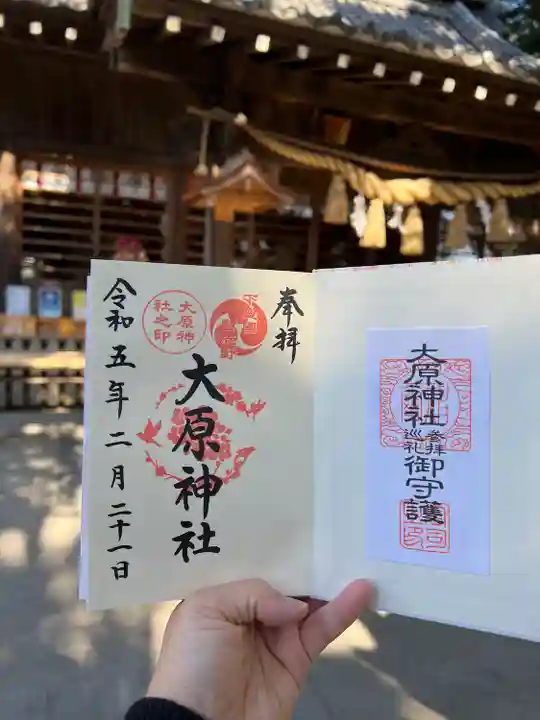 奉拝
下総国
習志野
大原神
社之印
大原神社
令和五年二月二十一日
大原神社
参拝
巡礼
御守護